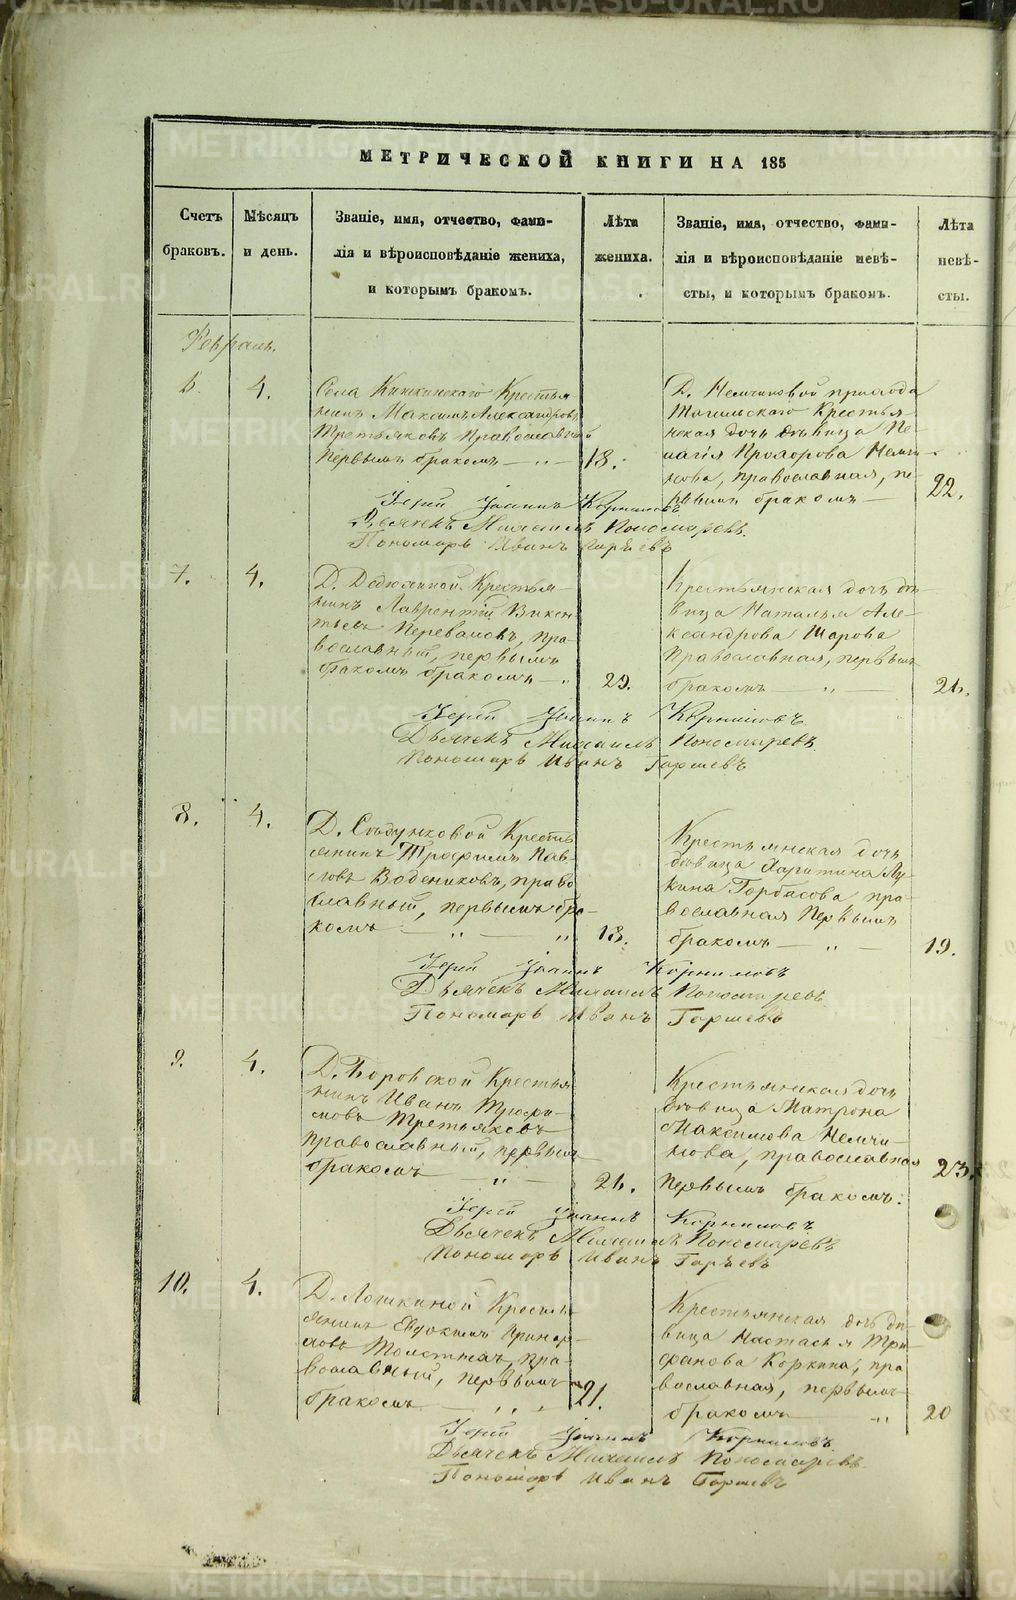 МЕТРИЧЕСКОЙ КНИГИ НА 185
Счетъ браковъ.
Мѣсяцъ и день.
Званіе, имя, отчество, фами-
лія и вѣроисповѣданіе жениха,
и которымъ бракомъ.
Лѣта жениха.
Званіе, имя, отчество, фами-
лія и вѣроисповѣданіе невѣ-
сты, и которымъ бракомъ.
Лѣта невѣ-
сты.
Февраль.
6 4.
Села Кишкинскаго Крестья
нинъ Максимъ Александровъ
Третьяковъ Православный
Первымъ бракомъ — „ —
18.
Д. Немчиновой прихода
Крестья
нская дочь дѣвица Пе-
лагія Прохорова Немчи-
нова, православная, пе-
рвымъ бракомъ —
22.
Іерей Іоаннъ Корниловъ
Дьячекъ Михаилъ Пономаревъ.
Пономарь Иванъ
7. 4.
Д. Крестья-
нинъ Лаврентій Викен
тьевъ Переваловъ, пра-
вославный, первымъ
бракомъ бракомъ — „
29.
Крестьянская дочь дѣ-
вица Наталья Але-
ксандрова Шарова
Православная, первымъ
бракомъ — „ —
21.
Іерей Іоаннъ Корниловъ
Дьячекъ Михаилъ Пономаревъ
Пономарь Иванъ
8. 4.
Д. Кресть
янинъ Трофимъ Пав-
ловъ Водениковъ, право
славный, первымъ бра-
комъ — „ — „
18.
Крестьянская дочь
дѣвица Харитина Лу-
кина Горбасова пра-
вославная Первымъ
бракомъ — „ —
19.
Іерей Іоаннъ Корниловъ
Дьячекъ Михаилъ Пономаревъ
Пономарь Иванъ
9. 4.
Д. Боровской Крестья
нинъ Иванъ Трофи-
мовъ Третьяковъ
православный, первымъ
бракомъ — „ —
21.
Крестьянская дочь
дѣвица Матрона
Максимова Немчи-
нова, православная
Первымъ бракомъ.
23.
Іерей Іоаннъ Корниловъ
Дьячекъ Михаилъ Пономаревъ
Пономарь Иванъ
10. 4.
Д. Лопкиной Кресть
янинъ Евдокимъ
Толстыхъ, пра-
вославный, первымъ
бракомъ — „ „
21.
Крестьянская дочь дѣ-
вица Настасья Три-
фанова Коркина, пра
вославная, первымъ
бракомъ „
20
Іерей Іоаннъ Корниловъ.
Дьячекъ Михаилъ Пономаревъ.
Пономарь Иванъ
METRIKI.GASO-URAL.RU